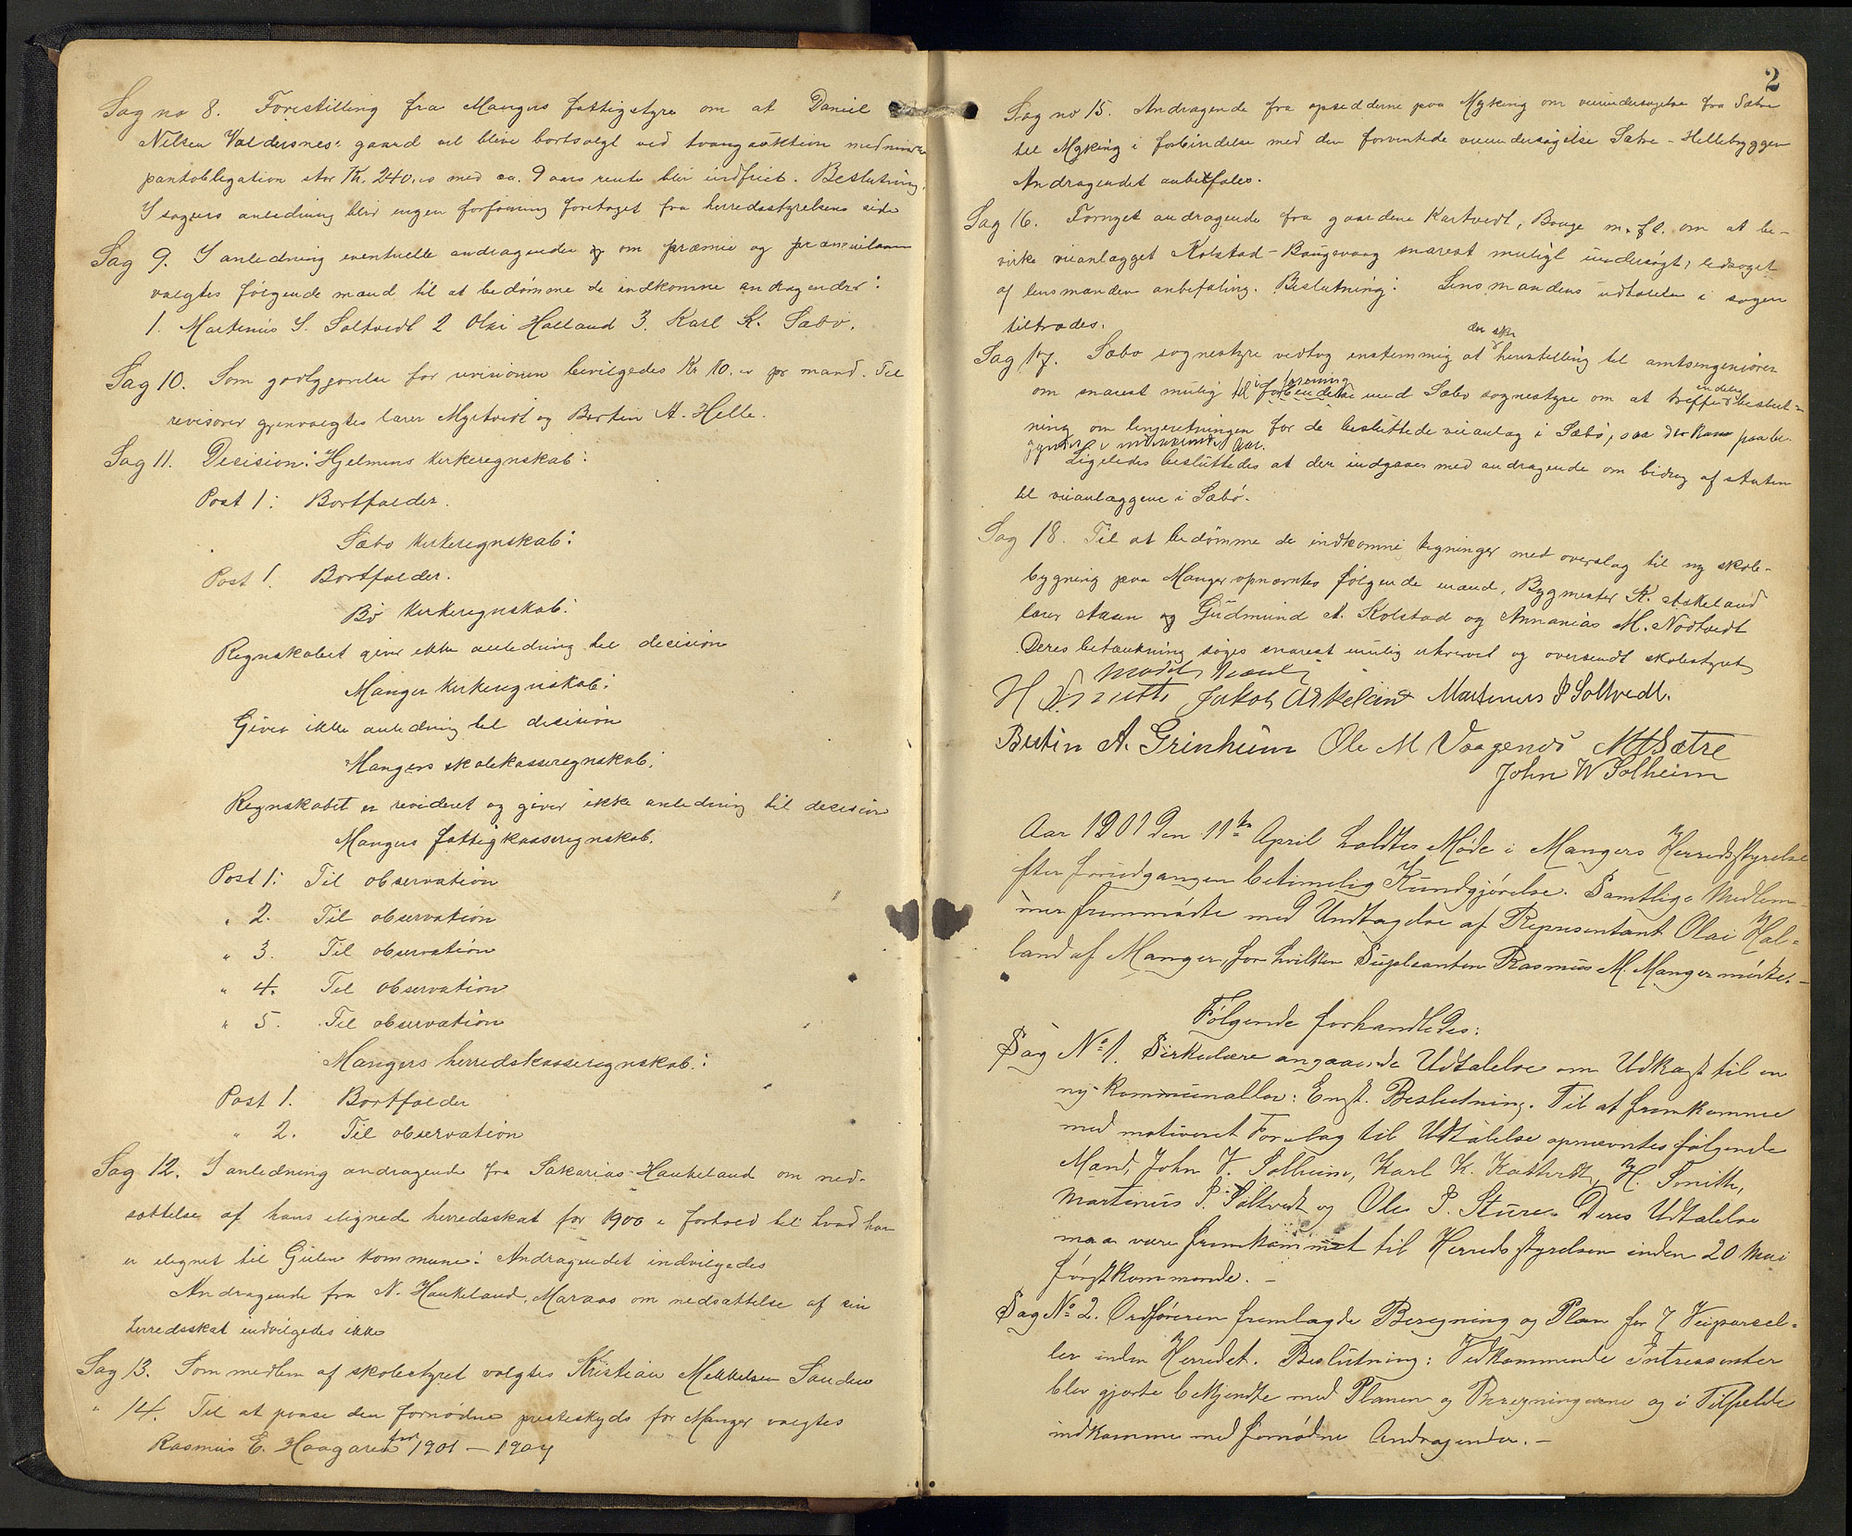 Sag no 8. Forestilling fra Mangers fattigstyre om at Daniel
Nilsen Valdersnes' gaard vil blive bortsolgt ved tvangsauktion medmindre
pantobligation stor Kr. 240.00 med ca. 9 aars rente blir indfriet. Beslutning.
I sagens anledning blir ingen forføining foretaget fra herredsstyrelsens side
Sag 9. I anledning eventuelle andragender om præmie og præmielaan
valgtes følgende mænd til at bedømme de indkomne andragender:
1. Martinus S. Soltvedt 2 Olai Halland 3. Karl K. Sæbø.
Sag 10. Som godtgjørelse for revisionen bevilgedes Kr 10.00 pr mand. Til
revisorer gjenvalgtes lærer Myrtvedt og Bertin A. Helle.
Sag 11. Decision: Hjelmens kirkeregnskab:
Post 1: Bortfalder.
Sæbø kirkeregnskab:
Post 1. Bortfalder.
Bø kirkeregnskab:
Regnskabet giver ikke anledning til decision
Manger kirkeregnskab:
Giver ikke anledning til decision
Mangers skolekasseregnskab:
Regnskabet er revideret og giver ikke anledning til decision
Mangers fattigkasseregnskab.
Post 1: Til observation
" 2. Til observation
" 3. Til observation
" 4. Til observation
" 5. Til observation
Mangers herredskasseregnskab:
Post 1. Bortfalder
" 2. Til observation
Sag 12. I anledning andragende fra Sakarias Haukeland om ned-
sættelse af hans ilignede herredsskat for 1900 i forhold til hvad han
er ilignet til Gulen kommune: Andragendet indvilgedes
Andragende fra N. Haukeland, Maraas om nedsættelse af sin
herredsskat indvilgedes ikke
Sag 13. Som medlem af skolestyret valgtes Kristian Mikkelsen Sandnes
" 14. Til at paase den fornødne presteskyds for Manger valgtes
Rasmus E. Haagaren for 1901 – 1904
2
Sag no 15. Andragende fra opsidderne paa Myking om veiundersøgelse fra Sætre
til Myking i forbindelse med den forventede veiundersøgelse Sætre – Hellebyggen
Andragendet anbefales.
Sag 16. Fornyet andragende fra gaardene Kartvedt, Bouge m. fl. om at be-
virke veianlægget Kolstad – Baugsvaag snarest muligt undersøgt, ledsaget
af lensmandens anbefaling. Beslutning: Lensmandens udtalelse i sagen
tiltrædes.
Sag 17. Sæbø sognestyre vedtog enstemmig at der sker henstilling til amtsingeniøren
om snarest mulig i forening med Sæbø sognestyre om at treffe endelig beslut-
ning om linjeretningen for de besluttede veianlæg i Sæbø, saa der kan paabe-
gyndes i indeværende aar.
Ligeledes besluttedes at der indgaaes med andragende om bidrag af staten
til veianlæggene i Sæbø.
Sag 18. Til at bedømme de indkomne tegninger med overslag til ny skole-
bygning paa Manger opnævntes følgende mænd, Bygmester K. Askeland
lærer Aasen og Gudmund A. Kolstad og Annanias M. Nodtvedt
Deres betænkning søges snarest mulig erhvervet og oversendt skolestyret
Mødet hævet
H Smith Jakob Askeland Martinus S Soltvedt.
Bertin A. Grinheim Ole M Vaagenes M H Sætre
John W Solheim
Aar 1901 den 11te April holdtes Møde i Mangers Herredsstyrelse
efter forudgangen betimelig Kundgjørelse. Samtlige Medlem-
mer fremmødte med Undtagelse af Repræsentant Olai Hal-
land af Manger, for hvilken Supleanten Rasmus M. Manger mødte. –
Følgende forhandledes:
Sag No 1. Sirkulære angaaende Udtalelse om Udkast til en
ny kommunallov: Enst. Beslutning. Til at fremkomme
med motiveret Forslag til Udtalelse opnævntes følgende
Mænd, John V. Solheim, Karl K. Kattvedt, H. Smith,
Martinus S. Soltvedt og Ole P. Sture. Deres Udtalelse
maa være fremkommet til Herredsstyrelsen inden 20 Mai
førstkommende. –
Sag No 2. Ordføreren fremlagde Beregning og Plan for 7 Veiparsel-
ler inden Herredet. Beslutning: Vedkommende Intressenter
blev gjorte bekjendte med Planen og Beregningerne og i Tilfælde
indkomme med fornødne Andragender. –